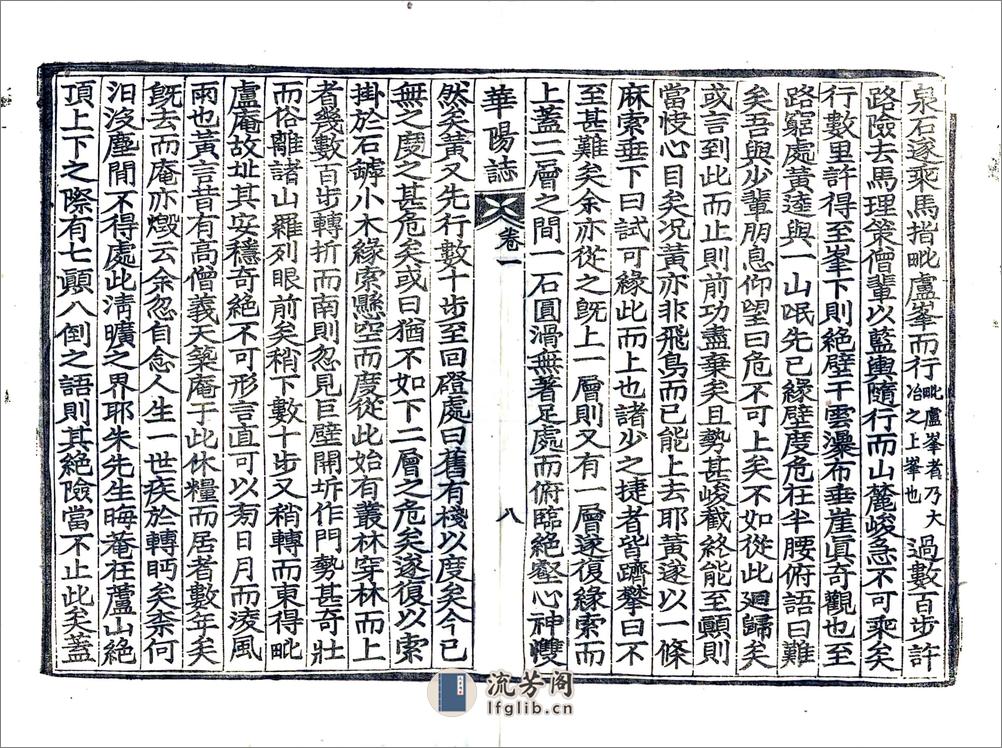 泉石遂乘馬揩毗盧峯而行毗盧峯者乃大冶之上峯也過數百步許
路險去馬理策僧輩以藍輿隨行而山麓峻急不可乘矣
行數里許得至峯下則絕壁干雲瀑布垂崖眞奇觀也至
路窮處黃逵與一山氓先已緣壁度危在半腰俯語曰難
矣吾與少輩朋息仰望曰危不可上矣不如從此廻歸矣
或言到此而止則前功盡棄矣且勢甚峻截終能至顚則
當悛心目矣况黃亦非飛鳥而已能上去耶黃遂以一條
麻索垂下曰試可緣此而上也諸少之捷者皆躋攀曰不
至甚難矣余亦從之旣上一層則又有一層遂復緣索而
上蓋二層之間一石圓滑無著足處而俯臨絕壑心神雙
華陽誌
卷一
八
然矣黃又先行數十步至回磴處曰舊有棧以度矣今已
無之度之甚危矣或曰猶不如下二層之危矣遂復以索
掛於石罅小木緣索懸空而度從此始有叢林穿林而上
者幾數百步轉折而南則忽見巨壁開坼作門勢甚奇壯
而俗離諸山羅列眼前矣稍下數十步又稍轉而東得毗
盧庵故址其安穩奇絕不可形言直可以旁日月而凌風
雨也黃言昔有高僧義天築庵于此休糧而居者數年矣
旣去而庵亦燬云余忽自念人生一世疾於轉眄矣柰何
汨沒塵間不得處此淸曠之界耶朱先生晦菴在蘆山絕
頂上下之際有七顚八倒之語則其絕險當不止此矣蓋
流芳阁
lfglib.cn